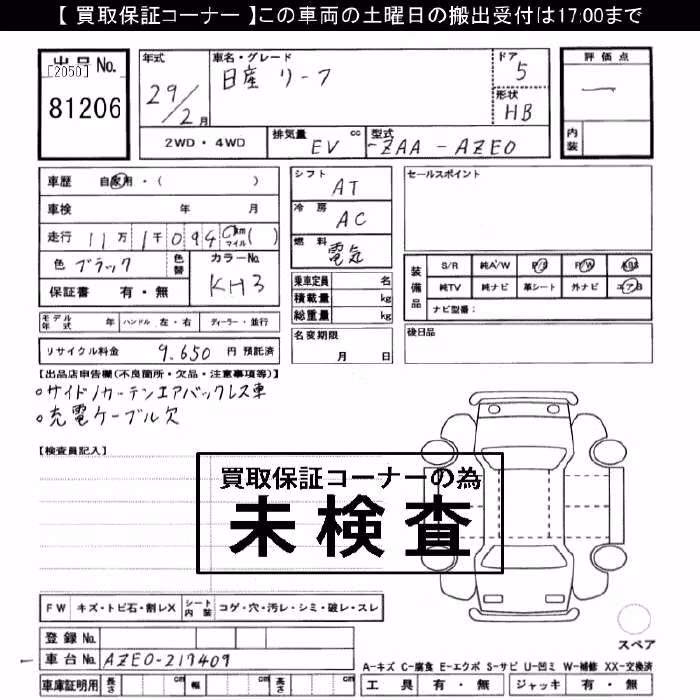 【 買取保証コーナー 】この車両の土曜日の搬出受付は17:00まで
出品No.
[2050]
81206
年式
29/2月
車名・グレード
日産 リーフ
ドア
5
形状
HB
評価点
一
内装
2WD・4WD
排気量 cc
EV
型式
-ZAA-AZE0
車歴 自家用・( )
車検 年 月
走行 11万1千094 km マイル( )
色 ブラック
色替
カラーNo.
KH3
保証書 有・無
シフト
AT
冷房
AC
燃料
電気
乗車定員 名
積載量 kg
総重量 kg
セールスポイント
装備品
S/R 純A/W P/S P/W ABS
純TV 純ナビ 革シート 外ナビ エアB
ナビ型番:
モデル年式 年 ハンドル 左・右 ディーラー・並行
リサイクル料金 9,650 円 預託済
名変期限
月 日
後日品
【出品店申告欄(不良箇所・欠品・注意事項等)】
○サイド/カーテンエアバックレス車
○充電ケーブル欠
【検査員記入】
買取保証コーナーの為
未検査
FW キズ・トビ石・割レX シート内装 コゲ・穴・汚レ・シミ・破レ・スレ
登録No.
車台No. AZE0-217409
車庫証明用 長さ cm 幅 cm 高さ cm
スペア
A-キズ C-腐食 E-エクボ S-サビ U-凹ミ W-補修 XX-交換済
工具 有・無 ジャッキ 有・無